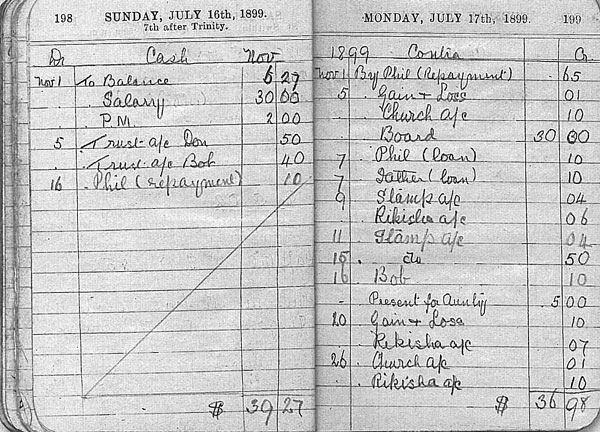 198 SUNDAY, JULY 16th, 1899.
7th after Trinity.
Dr Cash Nov
Nov 1 To Balance 6 27
. . Salary 30 00
. . P.M. 2 00
5 . Trust a/c Don 50
. . Trust a/c Bob 40
16 . Phil (repayment) 10
$ 39 27
MONDAY, JULY 17th, 1899. 199
1899 Contra Cr.
Nov 1 By Phil (Repayment) . 65
5 . Gain + Loss 01
. . Church a/c 10
. . Board 30 00
7 . Phil (loan) 10
7 . Father (loan) 10
9 . Stamp a/c 04
. . Rikisha a/c 06
11 . Stamp a/c 04
15 . do 50
16 . Bob 10
- . Present for Aunty 5 00
20 . Gain + Loss 10
. . Rikisha a/c 07
26 . Church a/c 01
. . Rikisha a/c 10
$ 36 98